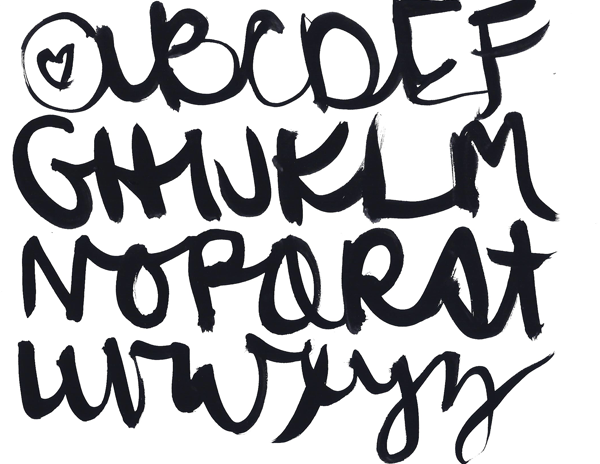 aBCDEF
GHIJKLM
NOPQRSt
uvwxyz